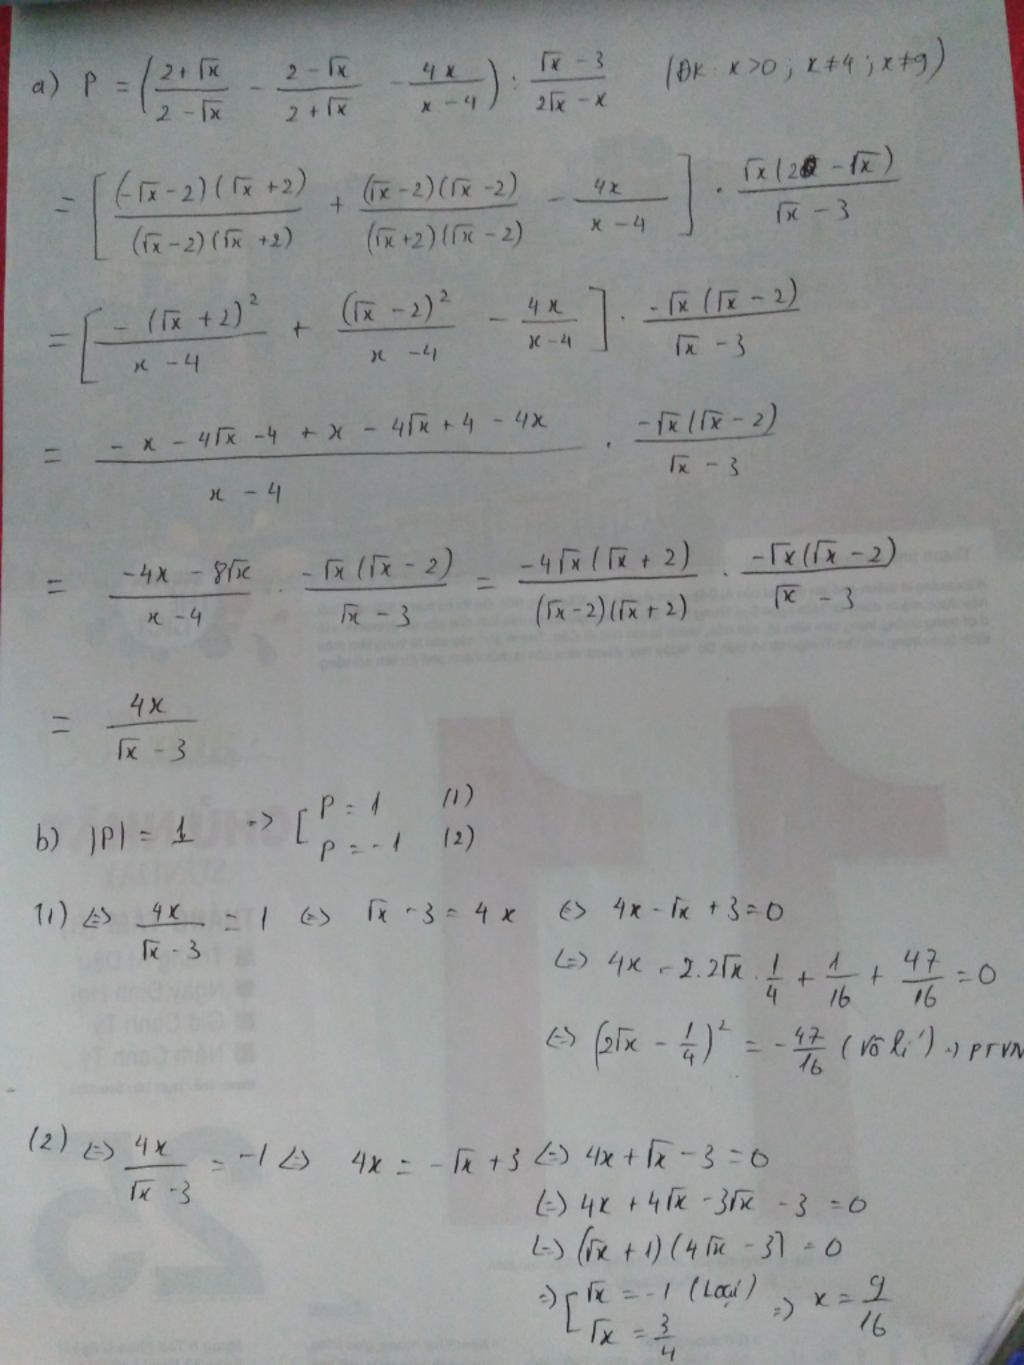 a) P = (2+√x / 2-√x - 2-√x / 2+√x - 4x / x-4) : √x-3 / 2√x-x (ĐK: x>0; x≠4; x≠9)
= [(-√x-2)(√x+2) / (√x-2)(√x+2) + (√x-2)(√x-2) / (√x+2)(√x-2) - 4x / x-4] . √x(2-√x) / √x-3
= [-(√x+2)² / x-4 + (√x-2)² / x-4 - 4x / x-4] . -√x(√x-2) / √x-3
= -x-4√x-4+x-4√x+4-4x / x-4 . -√x(√x-2) / √x-3
= -4x-8√x / x-4 . -√x(√x-2) / √x-3 = -4√x(√x+2) / (√x-2)(√x+2) . -√x(√x-2) / √x-3
= 4x / √x-3
b) |P| = 1 => [ P = 1 (1)
P = -1 (2)
(1) <=> 4x / √x-3 = 1 <=> √x-3 = 4x <=> 4x-√x+3=0
<=> 4x - 2.2√x . 1/4 + 1/16 + 47/16 = 0
<=> (2√x - 1/4)² = -47/16 (vô lí) => PTVN
(2) <=> 4x / √x-3 = -1 <=> 4x = -√x+3 <=> 4x+√x-3=0
<=> 4x+4√x-3√x-3=0
<=> (√x+1)(4√x-3)=0
=> [ √x = -1 (Loại) => x = 9/16
√x = 3/4